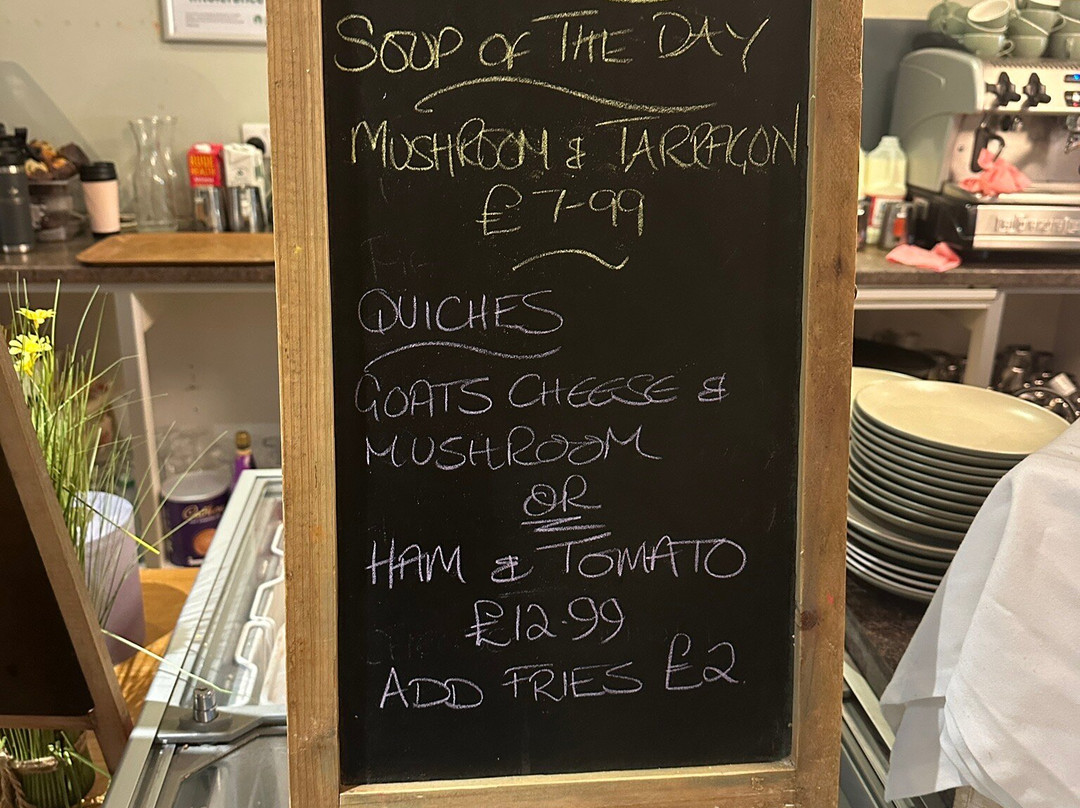 SOUP OF THE DAY
MUSHROOM & TARRAGON
£7-99
QUICHES
GOATS CHEESE &
MUSHROOM
OR
HAM & TOMATO
£12.99
ADD FRIES £2.
RUDE
HEALTH
Cadbury